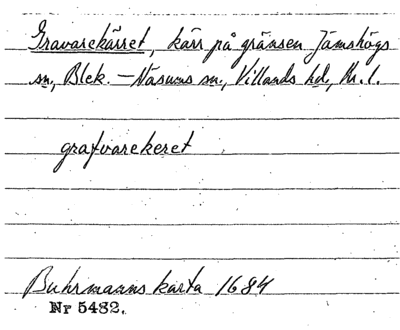 Gravarekärret, kärr på gränsen Jämshögs
sn, Blek. – Näsums sn., Villands hd, Kr. l.
grafvarekeret
Buhrmanns karta 1684
Nr 5482.